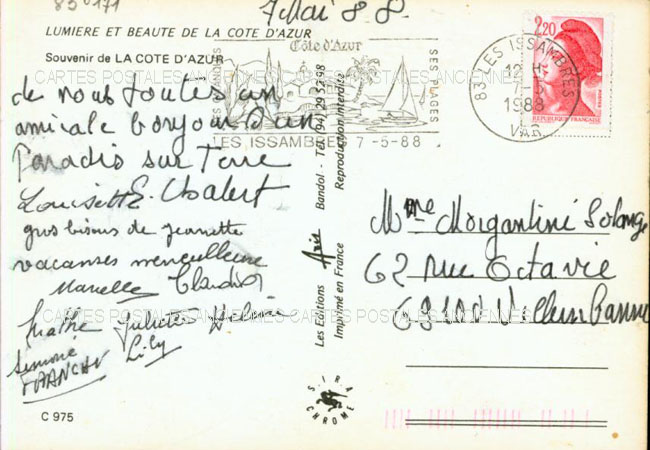 83 171
7 Mai 88
LUMIERE ET BEAUTE DE LA COTE D'AZUR
Souvenir de LA COTE D'AZUR
de nous toutes un
amicale bonjour d'un
Paradis sur Terre
Louisette E. Chabert
gros bisous de jeannette
vacances merveilleuse
Marcelle Claudia
Mathé Juliette Hélène
Simone Lily
C 975
Côte d'Azur
SES PLAGES
LES ISSAMBRES 7-5-88
83 LES ISSAMBRES
12 H
7-5
1988
VAR
2,20
REPUBLIQUE FRANÇAISE
Les Editions Aris Bandol - Tél. (94) 29 55 98
Imprimé en France Reproduction interdite
SIRA
CHROME
Mme Morgantini Solange
62 rue Octavie
69100 Villeurbanne
CARTES POSTALES ANCIENNES CARTES POSTALES ANCIENNES
CARTES POSTALES ANCIENNES CARTES POSTALES ANCIENNES